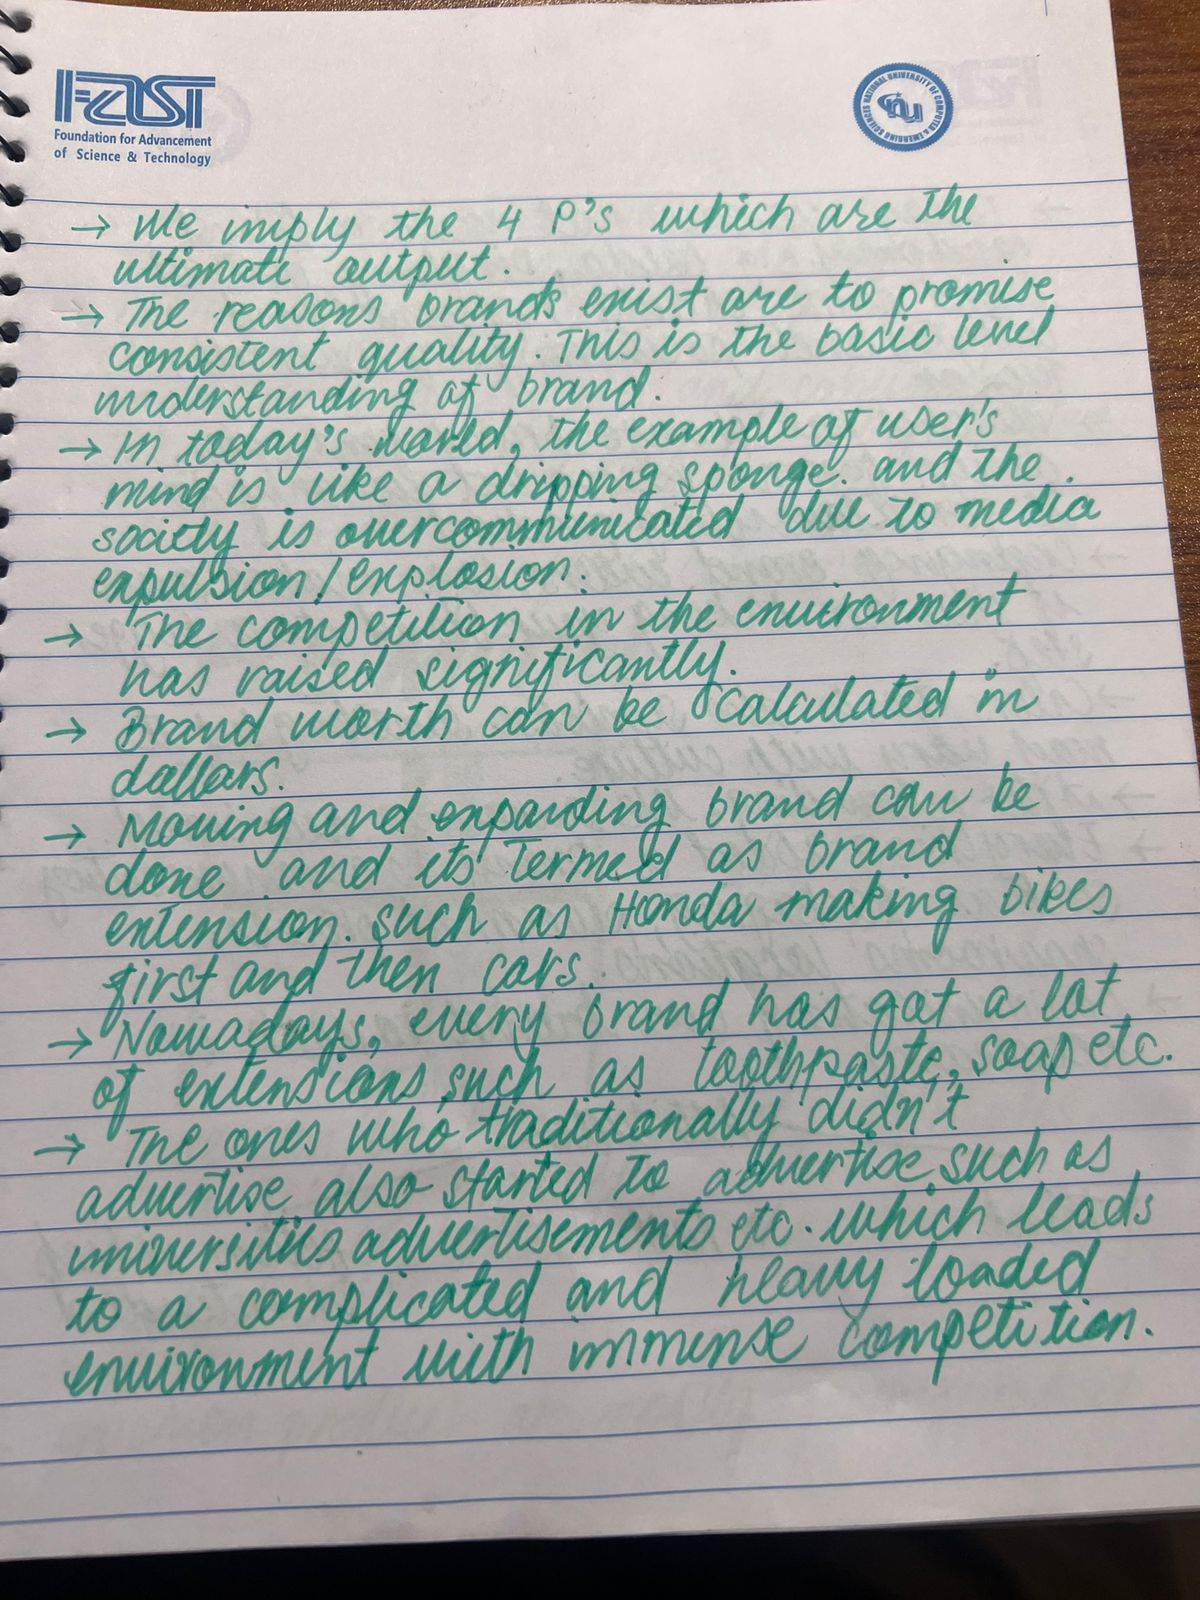 FAST
Foundation for Advancement
of Science & Technology
NATIONAL UNIVERSITY OF COMPUTER & EMERGING SCIENCES
nu
→ We imply the 4 P's which are the
ultimate output.
→ The reasons brands exist are to promise
consistent quality. This is the basic level
understanding of brand.
→ In today's world, the example of user's
mind is like a dripping sponge. and the
society is overcommunicated due to media
expulsion/explosion.
→ The competition in the environment
has raised significantly.
→ Brand worth can be calculated in
dollars.
→ Moving and expanding brand can be
done and its termed as brand
extension. such as Honda making bikes
first and then cars.
→ Nowadays, every brand has got a lot
of extensions such as toothpaste, soap etc.
→ The ones who traditionally didn't
advertise also started to advertise such as
universities advertisements etc. which leads
to a complicated and heavy loaded
environment with immense competition.